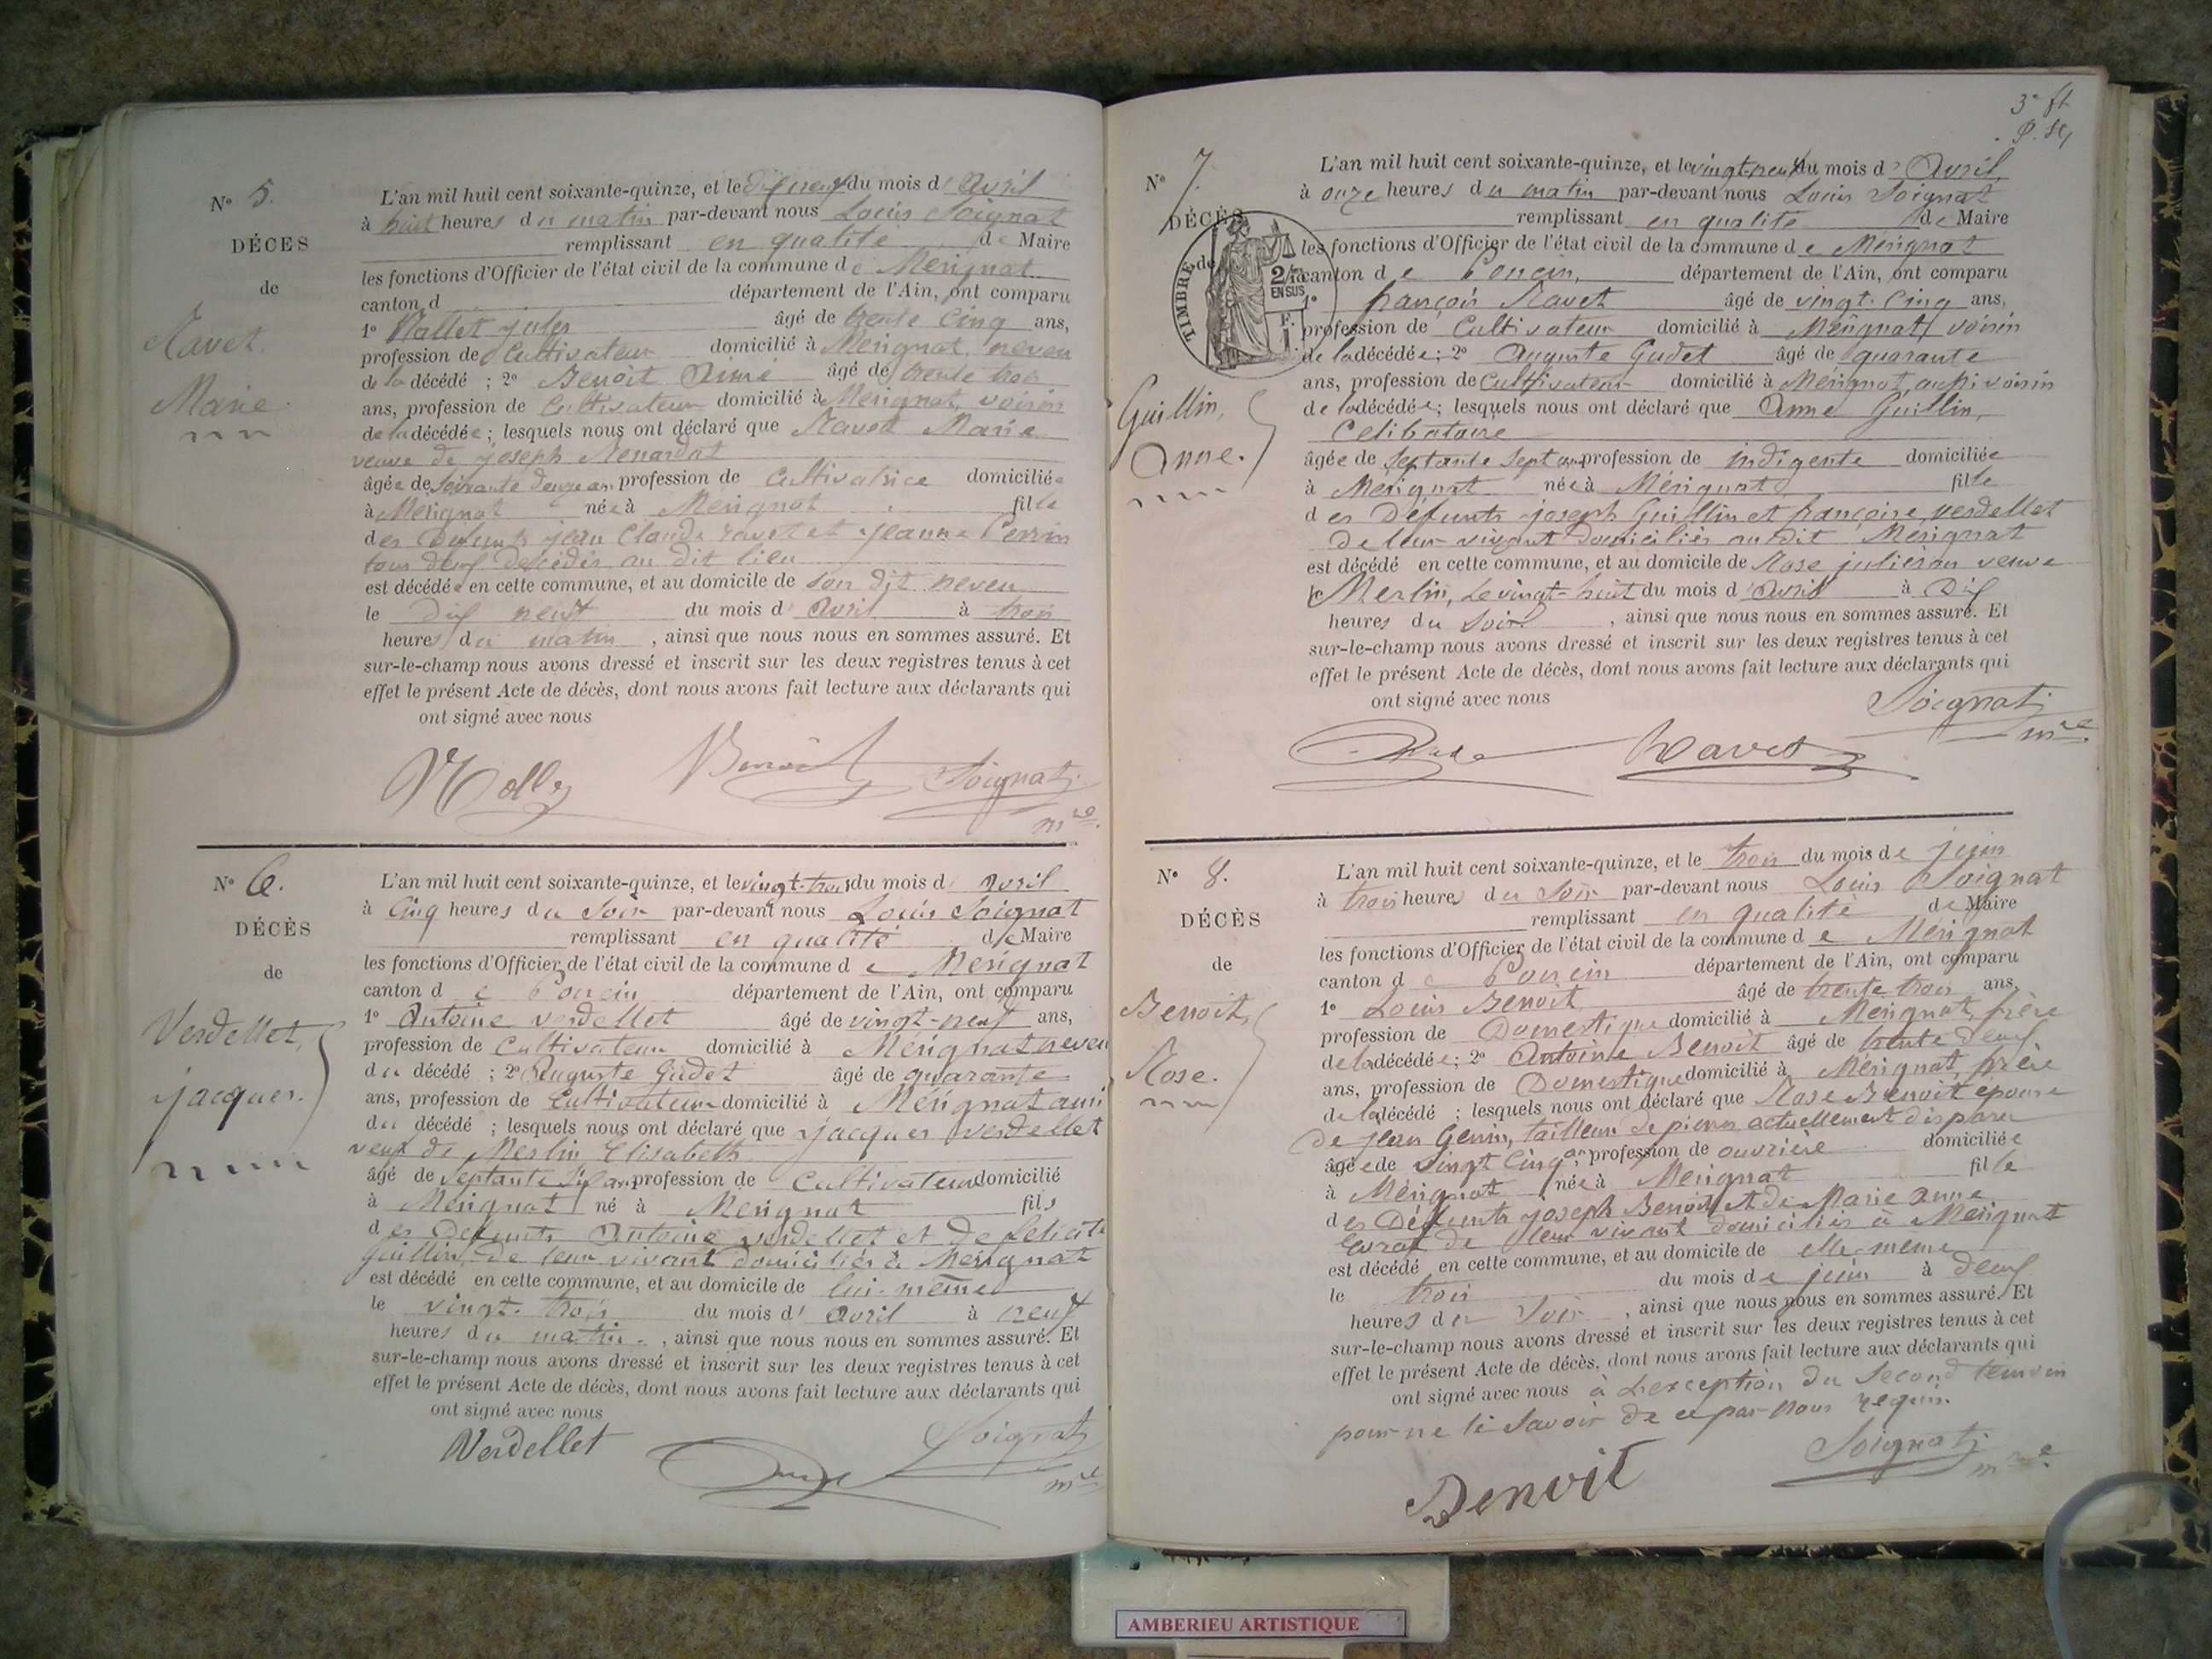 N° 5.
DÉCES
de
Ravet
Marie.
L'an mil huit cent soixante-quinze, et le dix neuf du mois d' Avril
à huit heures du matin par-devant nous Louis Soignat
remplissant en qualité de Maire
les fonctions d'Officier de l'état civil de la commune de Merignat
canton d département de l'Ain, ont comparu
1° Mollet jules âgé de trente Cinq ans,
profession de Cultivateur domicilié à Merignat, neveu
de la décédé ; 2° Benoit Aimé âgé de trente trois
ans, profession de Cultivateur domicilié à Merignat, voisin
de la décédée ; lesquels nous ont déclaré que Ravet Marie
veuve de joseph Renardat
âgée de soixante deuze an profession de Cultivatrice domiciliée
à Merignat née à Merignat fille
des Defunts jean Claude ravet et jeanne Perrin
tous deux décédés au dit lieu
est décédée en cette commune, et au domicile de son dit neveu
le dix neuf du mois d' Avril à trois
heures du matin , ainsi que nous nous en sommes assuré. Et
sur-le-champ nous avons dressé et inscrit sur les deux registres tenus à cet
effet le présent Acte de décès, dont nous avons fait lecture aux déclarants qui
ont signé avec nous
Benoit Soignat
mre
N° 6.
DÉCÈS
de
Verdellet,
jacques.
L'an mil huit cent soixante-quinze, et le vingt-trois du mois d' Avril
à Cinq heures du Soir par-devant nous Louis Soignat
remplissant en qualité de Maire
les fonctions d'Officier de l'état civil de la commune de Merignat
canton de Poncin département de l'Ain, ont comparu
1° Antoine verdellet âgé de vingt-neuf ans,
profession de Cultivateur domicilié à Merignat neveu
du décédé ; 2° Auguste Gudet âgé de quarante
ans, profession de Cultivateur domicilié à Merignat ami
du décédé ; lesquels nous ont déclaré que jacques Verdellet
veuf de Merlin Elisabeth
âgé de septante six ans profession de Cultivateur domicilié
à Merignat né à Merignat fils
des Defunts Antoine verdellet et de felicité
Guillin, de leur vivant domiciliés à Merignat
est décédé en cette commune, et au domicile de lui-même
le vingt-trois du mois d' Avril à neuf
heures du matin. , ainsi que nous nous en sommes assuré. Et
sur-le-champ nous avons dressé et inscrit sur les deux registres tenus à cet
effet le présent Acte de décès, dont nous avons fait lecture aux déclarants qui
ont signé avec nous
Verdellet Soignat
mre
3e ft
N° 7.
DÉCÈS
de
TIMBRE
2/10
EN SUS
Guillin,
Anne.
L'an mil huit cent soixante-quinze, et le vingt-neuf du mois d' Avril,
à onze heures du matin par-devant nous Louis Soignat
remplissant en qualité de Maire
les fonctions d'Officier de l'état civil de la commune de Merignat
canton de Poncin, département de l'Ain, ont comparu
1° françois Ravet âgé de vingt-Cinq ans,
profession de Cultivateur domicilié à Merignat, voisin
de la décédée ; 2° Auguste Gudet âgé de quarante
ans, profession de Cultivateur domicilié à Merignat, aussi voisin
de la décédée ; lesquels nous ont déclaré que Anne Guillin,
Celibataire
âgée de Septante Sept ans profession de indigente domiciliée
à Merignat née à Merignat fille
des Défunts joseph Guillin et françoise verdellet
De leur vivant domiciliés au dit Merignat
est décédé en cette commune, et au domicile de Rose julieron veuve
Merlin, Le vingt-huit du mois d' Avril à Dix
heures du Soir , ainsi que nous nous en sommes assuré. Et
sur-le-champ nous avons dressé et inscrit sur les deux registres tenus à cet
effet le présent Acte de décès, dont nous avons fait lecture aux déclarants qui
ont signé avec nous Soignat
mre
Ravet
N° 8.
DÉCÈS
de
Benoit,
Rose.
L'an mil huit cent soixante-quinze, et le trois du mois de juin
à trois heures du Soir par-devant nous Louis Soignat
remplissant en qualité de Maire
les fonctions d'Officier de l'état civil de la commune de Merignat
canton de Poncin département de l'Ain, ont comparu
1° Louis Benoit âgé de trente trois ans,
profession de Domestique domicilié à Merignat, frère
de la décédée ; 2° Antoine Benoit âgé de trente deux
ans, profession de Domestique domicilié à Merignat, frère
de la décédé ; lesquels nous ont déclaré que Rose Benoit epouse
de jean Genin, tailleur de pierres actuellement disparu
âgée de vingt Cinq an profession de ouvrière domiciliée
à Merignat née à Merignat fille
des Défunts joseph Benoit et de Marie Anne
de leur vivant domiciliés à Merignat
est décédé en cette commune, et au domicile de elle-même
le trois du mois de juin à deux
heures du Soir , ainsi que nous nous en sommes assuré. Et
sur-le-champ nous avons dressé et inscrit sur les deux registres tenus à cet
effet le présent Acte de décès, dont nous avons fait lecture aux déclarants qui
ont signé avec nous à L'exception du Second temoin
pour ne le Savoir de ce par nous requis.
Benoit Soignat
mre
AMBERIEU ARTISTIQUE